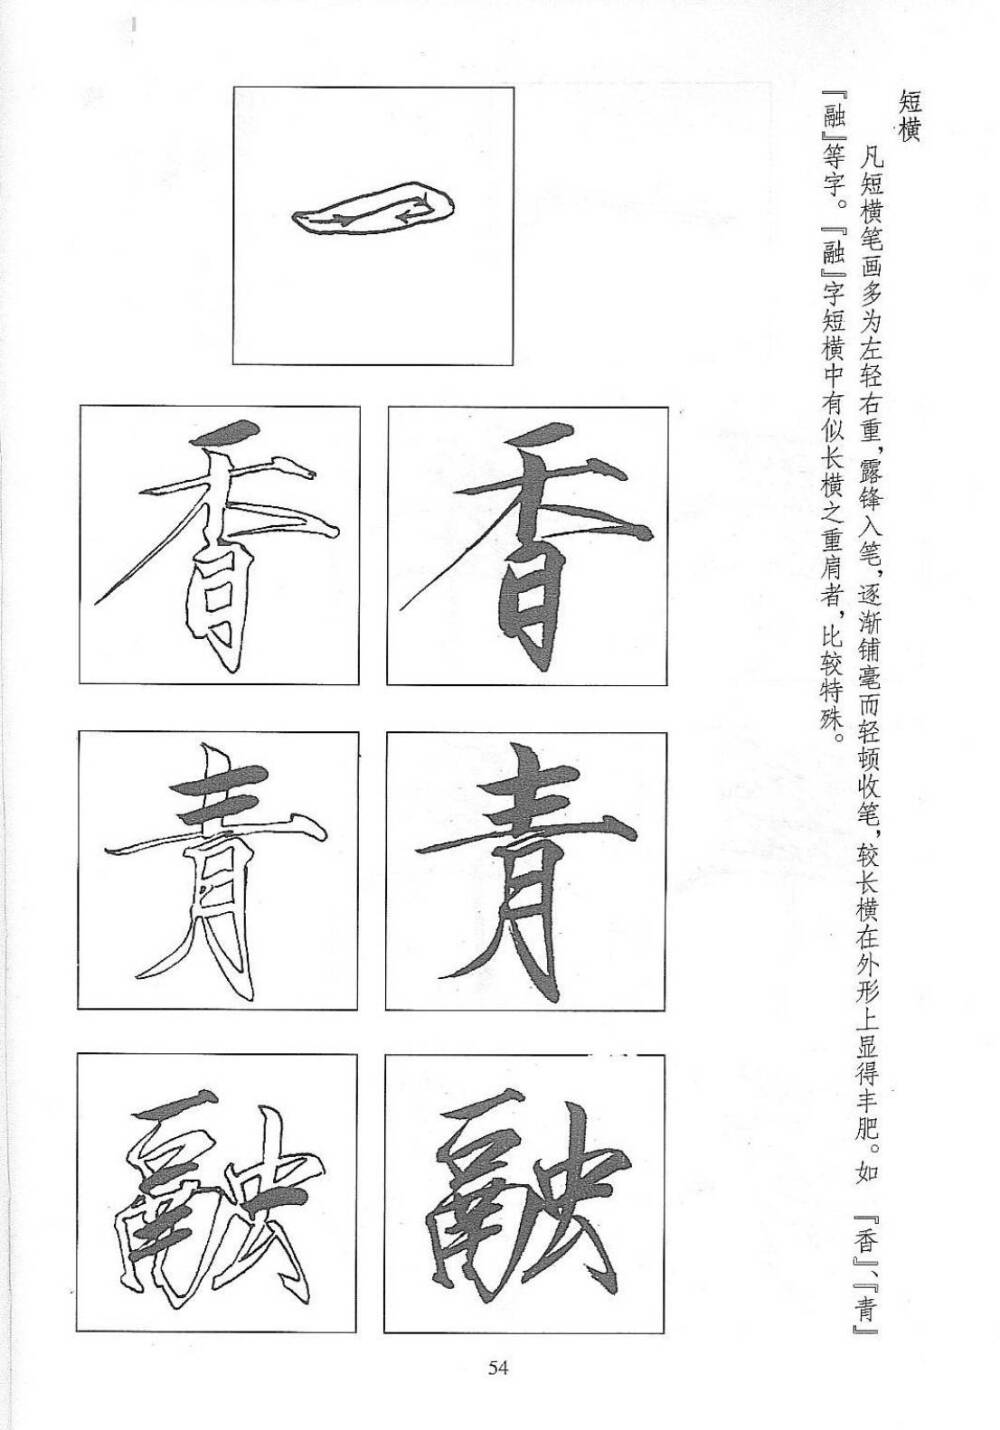 短横
凡短横笔画多为左轻右重，露锋入笔，逐渐铺毫而轻顿收笔，较长横在外形上显得丰肥。如『香』、『青』
『融』等字。『融』字短横中有似长横之重肩者，比较特殊。
香 香
青 青
融 融
54